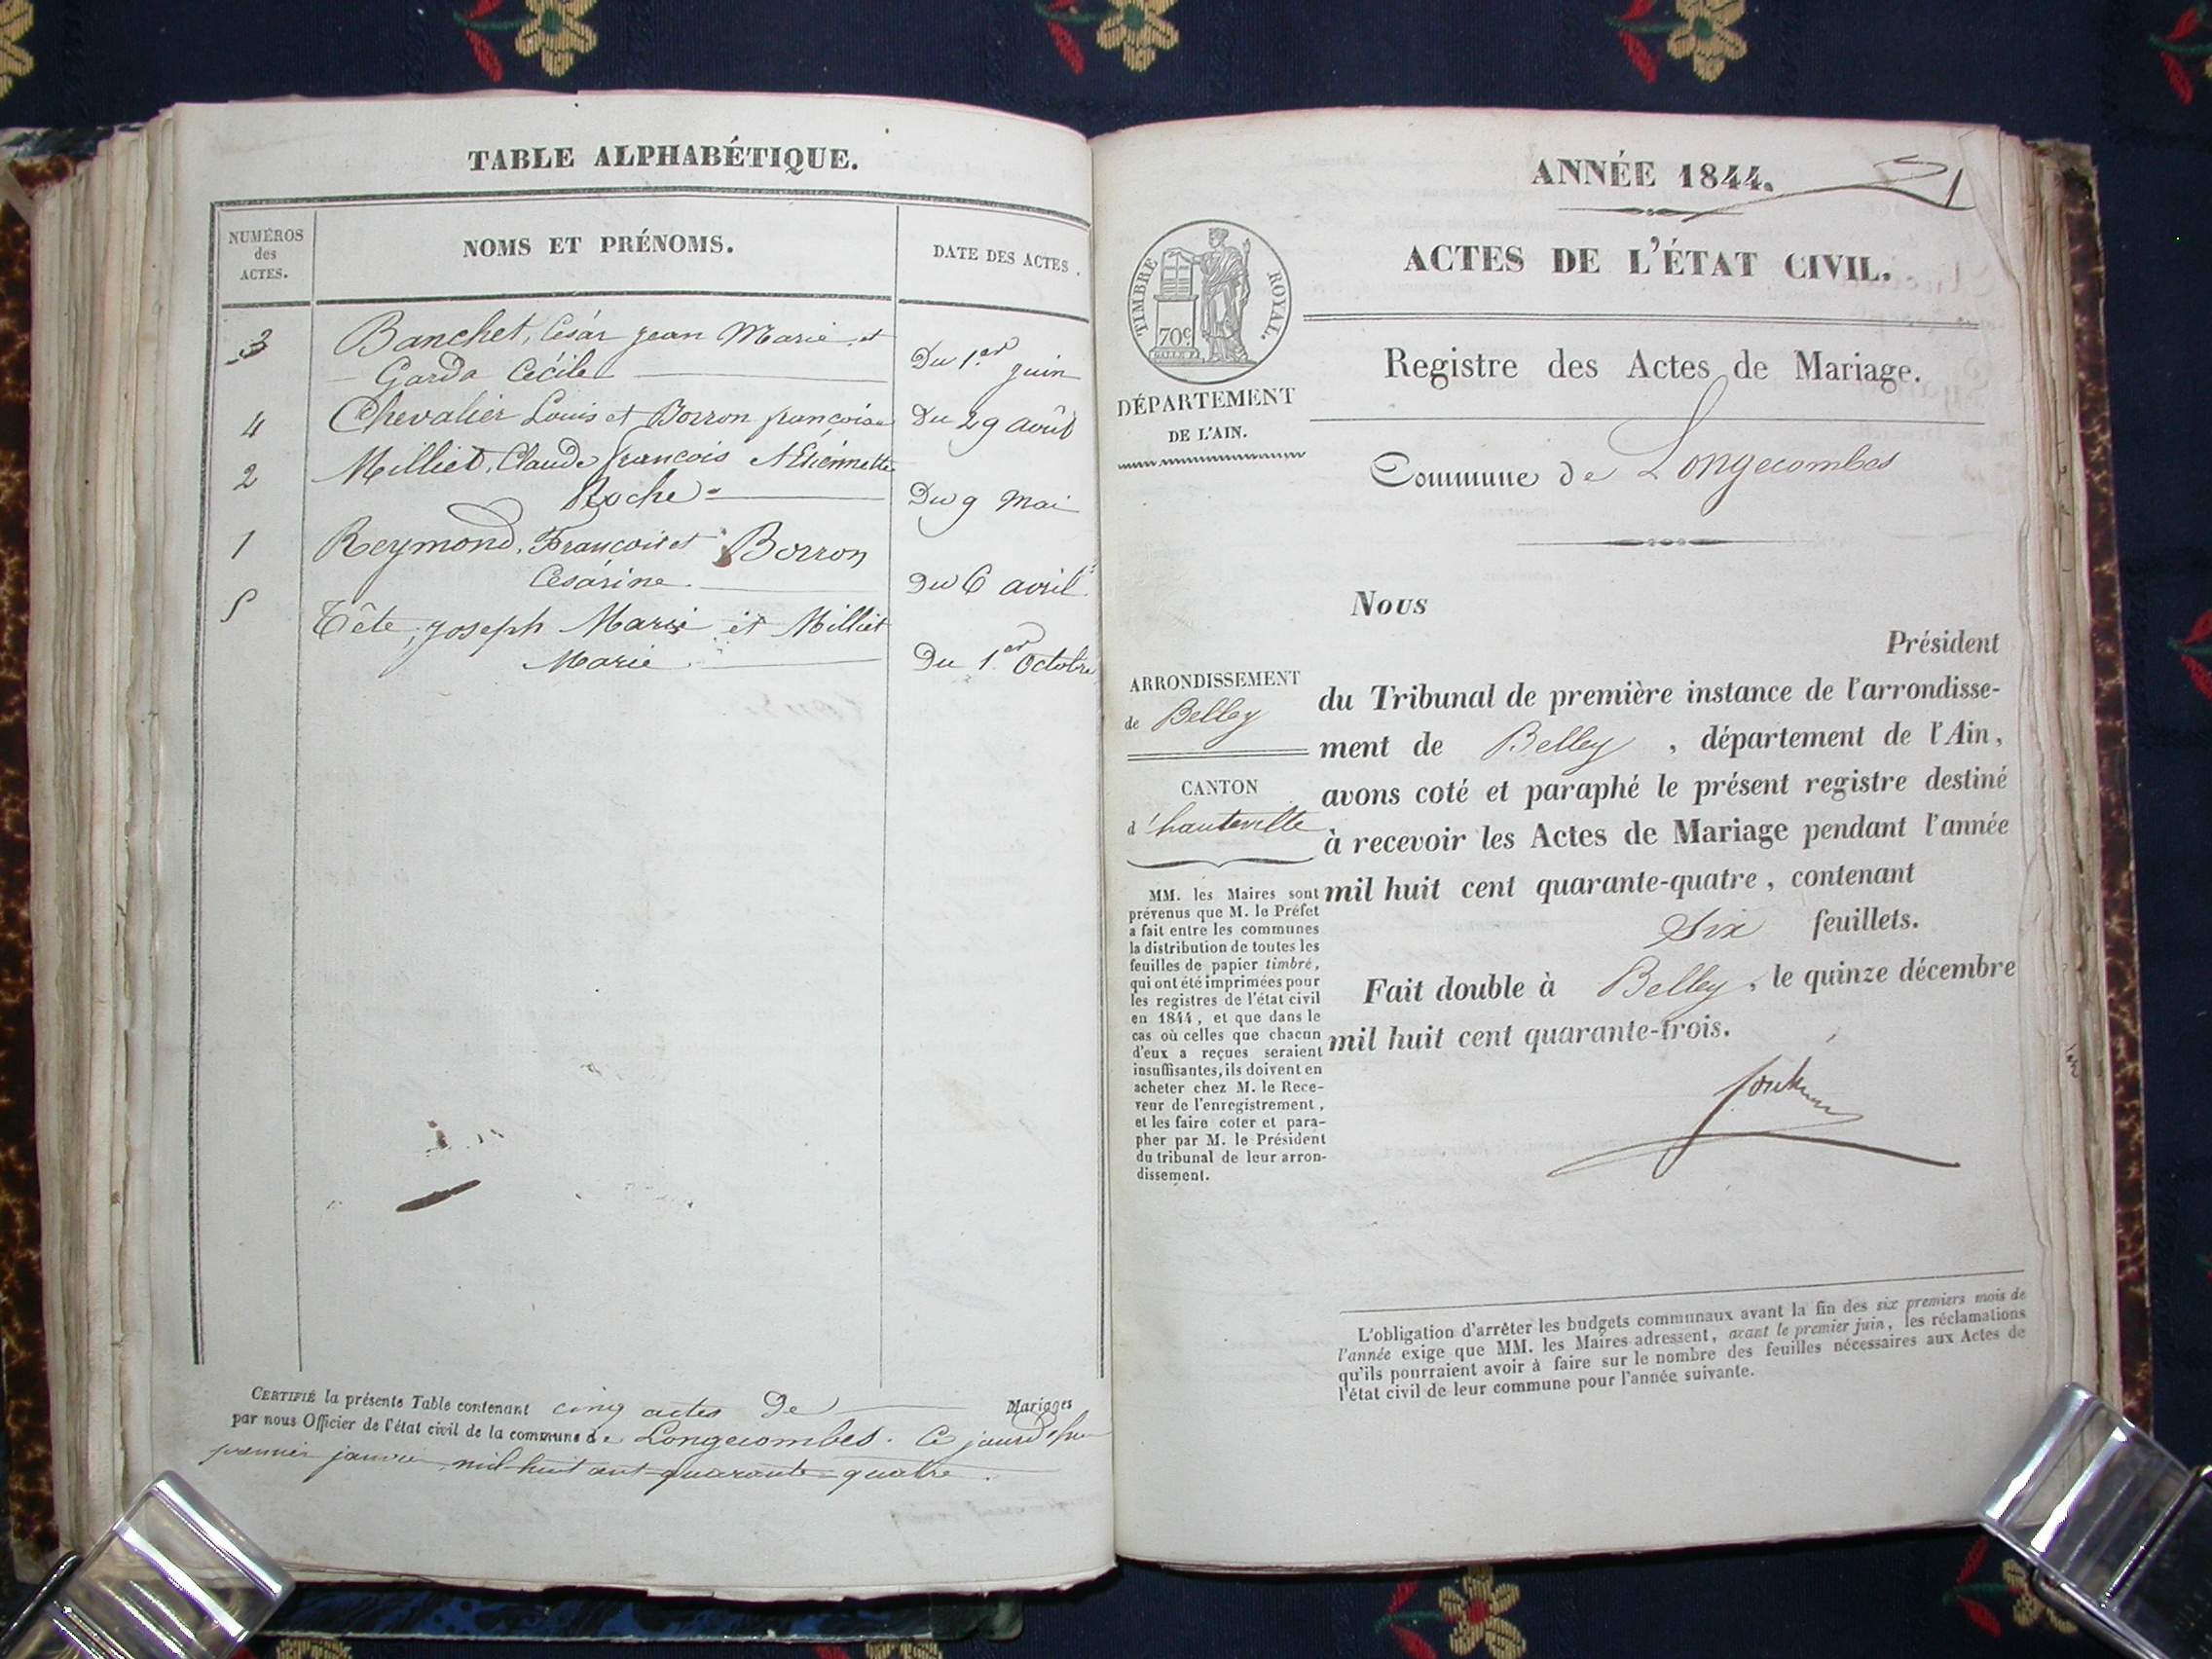 TABLE ALPHABÉTIQUE.
NUMÉROS
des
ACTES.
NOMS ET PRÉNOMS.
DATE DES ACTES.
3
Banchet, César jean Marie et
Garda Cécile
Du 1er juin
4
Chevalier Louis et Borron françoise
Du 29 août
2
Milliet, Claude françois et Etiennette
Roche
Du 9 Mai
1
Reymond, François et Borron
Césarine
Du 6 avril
5
Tête, joseph Marie et Milliet
Marie
Du 1er Octobre
CERTIFIÉ la présente Table contenant cinq actes de Mariages
par nous Officier de l'état civil de la commune de Longecombes. Ce jourd'hui
premier janvier mil huit cent quarante=quatre.
ANNÉE 1844.
1
ACTES DE L'ÉTAT CIVIL.
TIMBRE ROYAL.
70c
Registre des Actes de Mariage.
DÉPARTEMENT
DE L'AIN.
Commune de Longecombes
Nous
Président
du Tribunal de première instance de l'arrondisse-
ment de Belley, département de l'Ain,
avons coté et paraphé le présent registre destiné
à recevoir les Actes de Mariage pendant l'année
mil huit cent quarante-quatre, contenant
Six feuillets.
Fait double à Belley, le quinze décembre
mil huit cent quarante-trois.
ARRONDISSEMENT
de Belley
CANTON
d'hauteville
MM. les Maires sont
prévenus que M. le Préfet
a fait entre les communes
la distribution de toutes les
feuilles de papier timbré,
qui ont été imprimées pour
les registres de l'état civil
en 1844, et que dans le
cas où celles que chacun
d'eux a reçues seraient
insuffisantes, ils doivent en
acheter chez M. le Rece-
veur de l'enregistrement,
et les faire coter et para-
pher par M. le Président
du tribunal de leur arron-
dissement.
L'obligation d'arrêter les budgets communaux avant la fin des six premiers mois de
l'année exige que MM. les Maires adressent, avant le premier juin, les réclamations
qu'ils pourraient avoir à faire sur le nombre des feuilles nécessaires aux Actes de
l'état civil de leur commune pour l'année suivante.